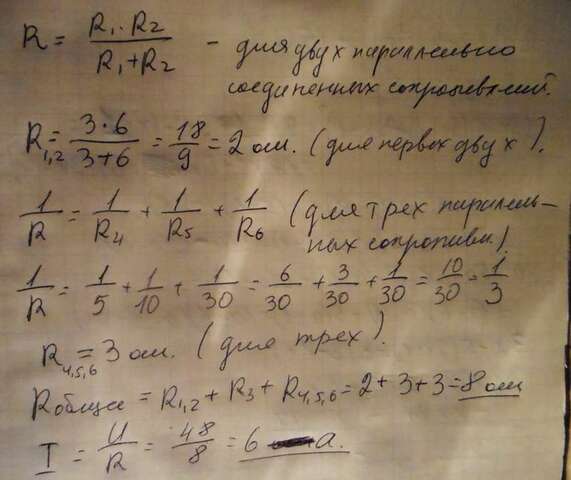 R = R₁·R₂ / R₁+R₂ - для двух параллельно
соединенных сопротивлений.
R₁,₂ = 3·6 / 3+6 = 18/9 = 2 ом. (для первых двух).
1/R = 1/R₄ + 1/R₅ + 1/R₆ (для трех параллель-
ных сопротивл.)
1/R = 1/5 + 1/10 + 1/30 = 6/30 + 3/30 + 1/30 = 10/30 = 1/3
R₄,₅,₆ = 3 ом. (для трех).
Rобщее = R₁,₂ + R₃ + R₄,₅,₆ = 2 + 3 + 3 = 8 ом
I = U/R = 48/8 = 6 а.